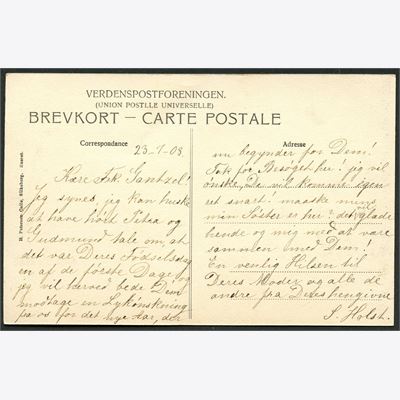 VERDENSPOSTFORENINGEN.
(UNION POSTLLE UNIVERSELLE)
BREVKORT — CARTE POSTALE
Correspondance
23-1-08.
Kære Frk. Gantzel!
Jeg synes, jeg kan huske
at have hørt Petra og
Gudmund tale om, at
det var Deres Fødselsdag
en af de første Dage og
jeg vil herved bede Dem
modtage en Lykønskning
fra os for det nye Aar, der
Adresse
nu begynder for Dem!
Tak for Besøget her! jeg vil
ønske, De vil komme igen
ret snart! maaske mens
min Søster er her? det glade
hende og mig med at være
sammen med Dem!
En venlig Hilsen til
Deres Moder og alle de
andre fra Deres hengivne
S. Holst.
H. Petersen, Silkeborg. Eneret.